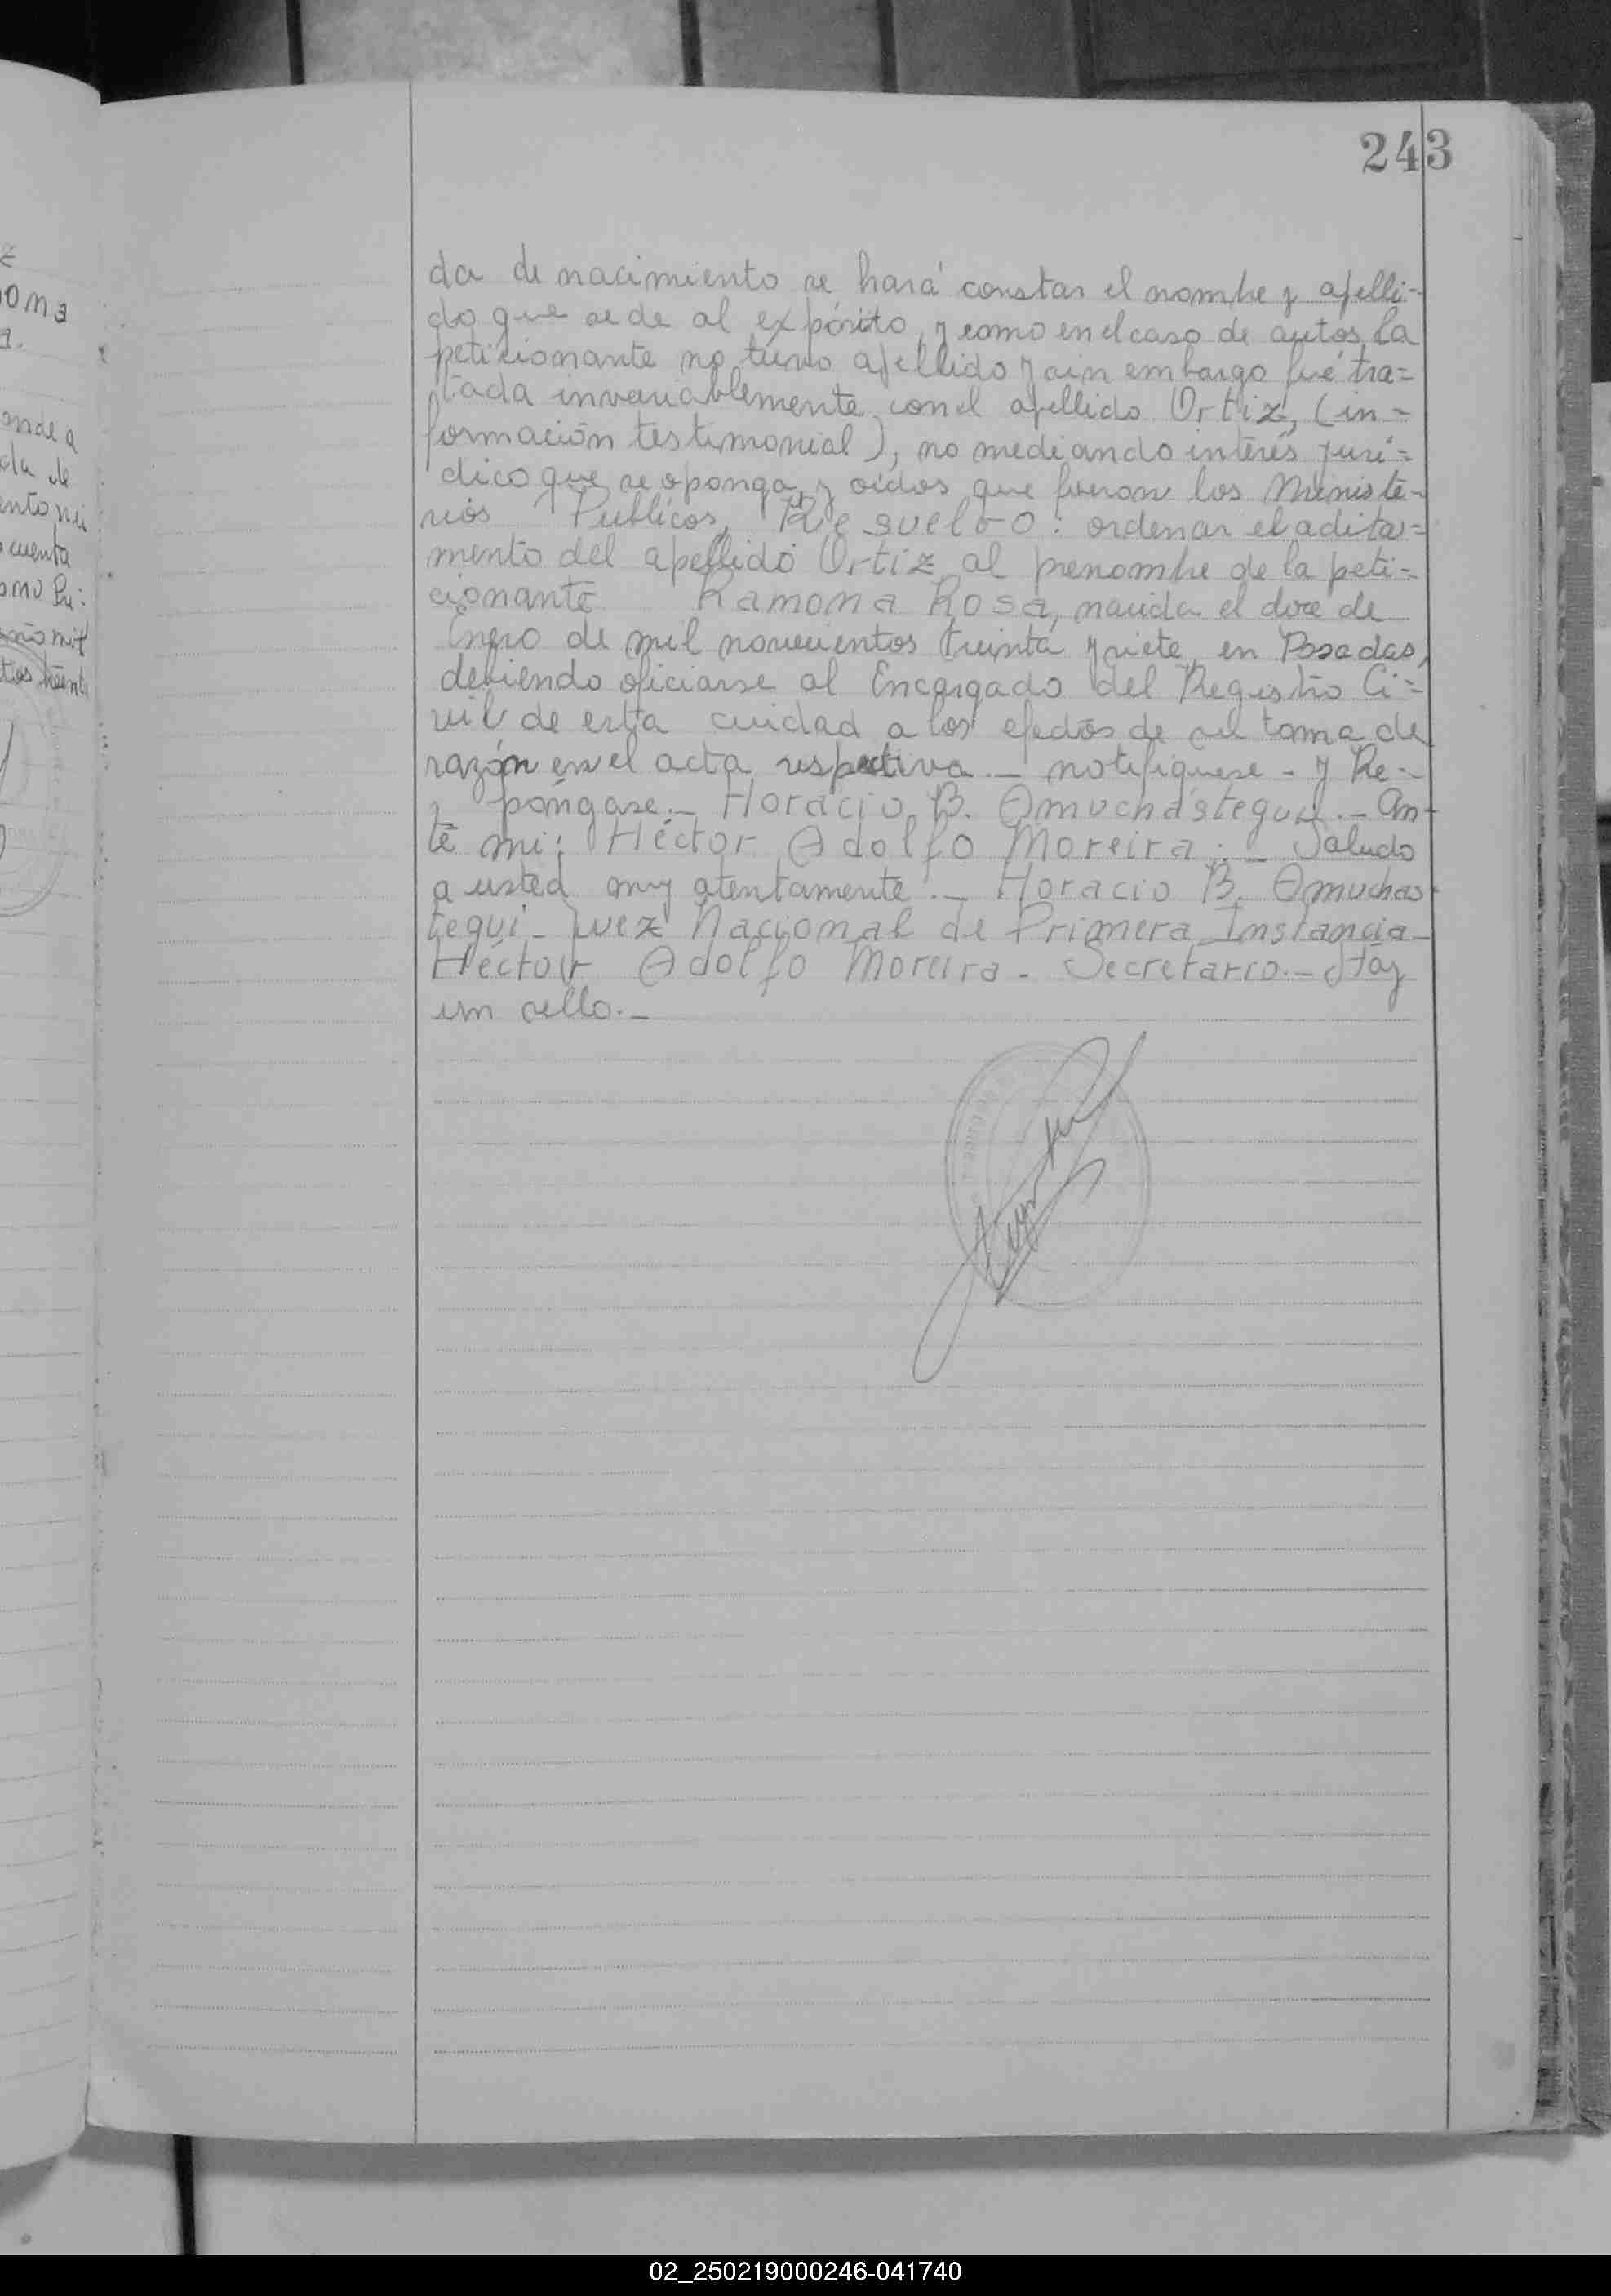 243
z
oma
a.
onde a
da de
ento ni
cuenta
omo Pri:
año mil
tos treint
da de nacimiento se hará constar el nombre y apelli-
do que se de al expósito, y como en el caso de autos, la
peticionante no tuvo apellido y sin embargo fué tra=
tada invariablemente con el apellido Ortiz, (in=
formación testimonial), no mediando interés juri=
dico que se oponga, y oídos que fueron los Ministe-
rios Publicos, Resuelvo: ordenar el adita=
mento del apellido Ortiz al prenombre de la peti=
cionante Ramona Rosa, nacida el doce de
Enero de mil novecientos treinta y siete, en Posadas,
debiendo oficiarse al Encargado del Registro Ci=
vil de esta cuidad a los efectos de su toma de
razón en el acta respectiva.- notifiquese - y Re-
póngase.- Horacio B. Amuchástegui.- An-
te mi: Héctor Adolfo Moreira.- Saludo
a usted muy atentamente.- Horacio B. Amuchas-
tegui - Juez Nacional de Primera Instancia-
Héctor Adolfo Moreira - Secretario.- Hay
un sello.-
02_250219000246-041740